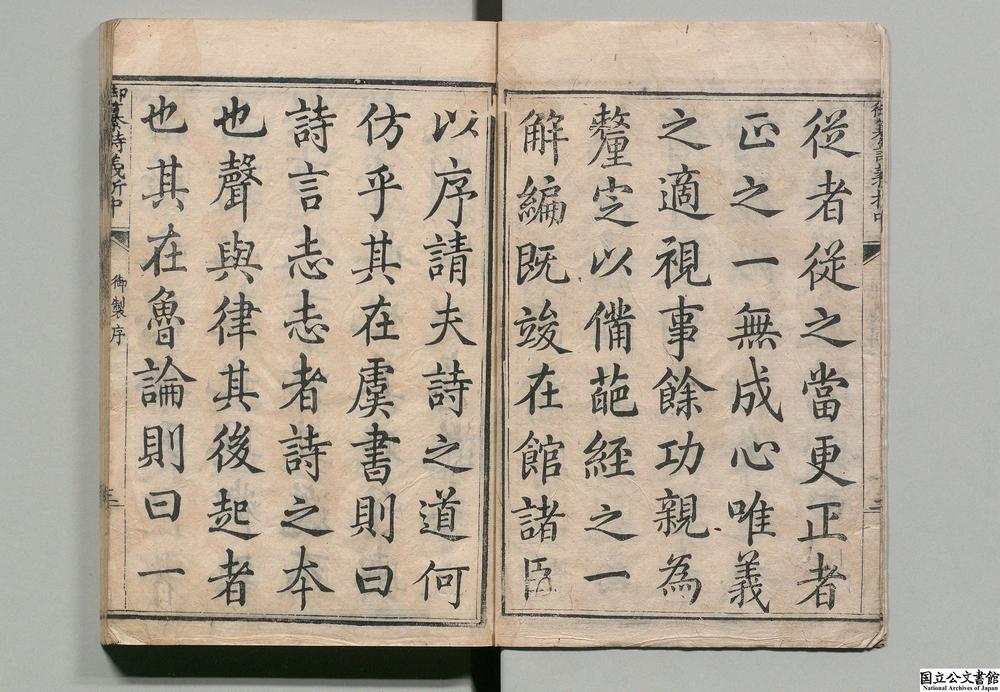 從者從之當更正者
正之一無成心唯義
之適視事餘功親為
釐定以備葩經之一
解編既竣在館諸臣
以序請夫詩之道何
仿乎其在虞書則曰
詩言志志者詩之本
也聲與律其後起者
也其在魯論則曰一
御製序
国立公文書館
National Archives of Japan